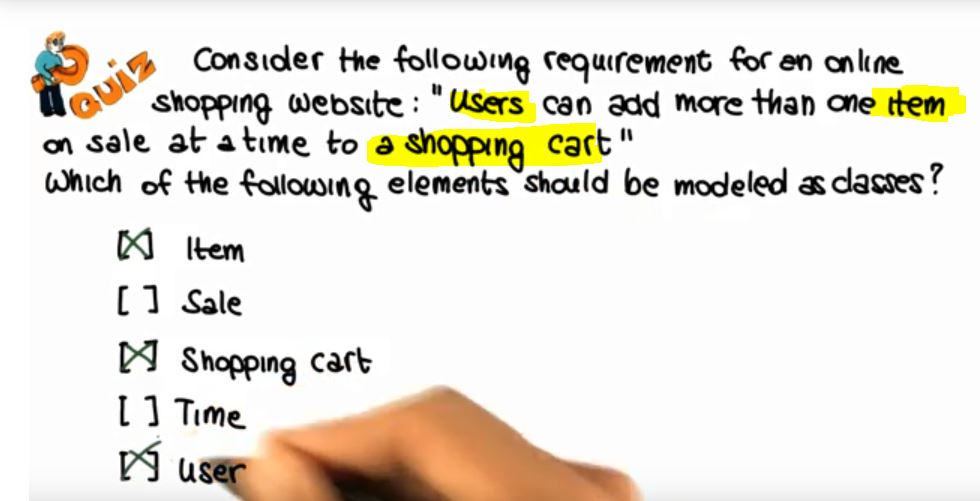 QUIZ Consider the following requirement for an online
shopping website: "Users can add more than one item
on sale at a time to a shopping cart"
Which of the following elements should be modeled as classes?
[X] Item
[ ] Sale
[X] Shopping cart
[ ] Time
[X] User